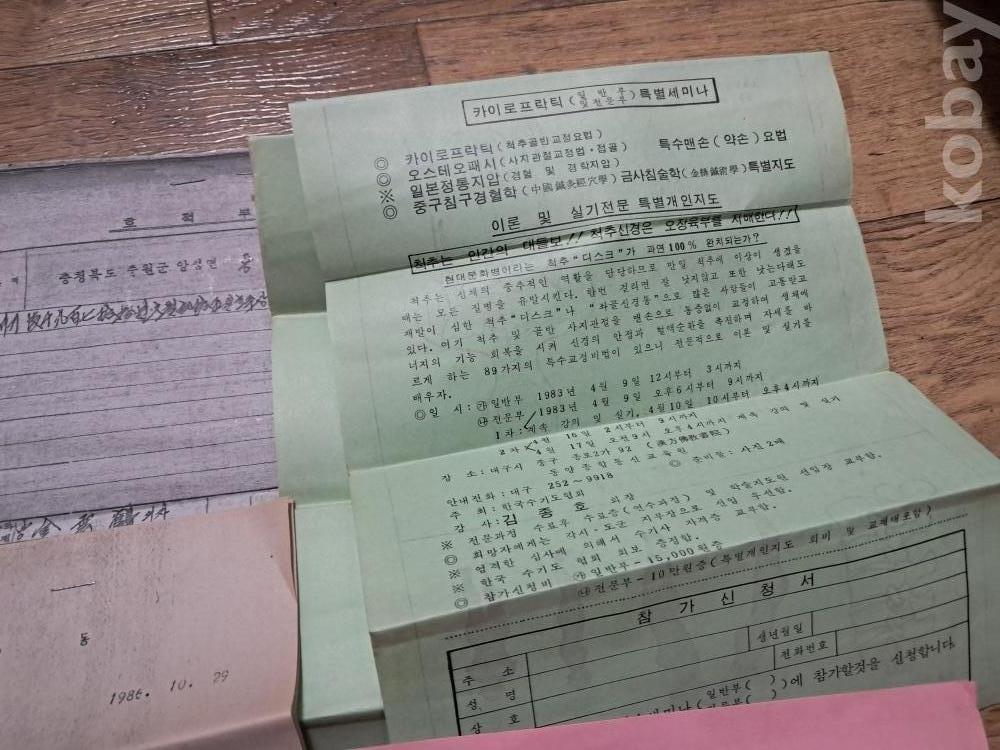 kobay
카이로프락틱 (일반부 및전문부) 특별세미나
◎ 카이로프락틱 (척추골반교정요법)
◎ 오스테오패시 (사지관절교정법·접골) 특수맨손 (약손) 요법
※ 일본정통지압 (경혈 및 경락지압)
◎ 중구침구경혈학 (中國鍼灸經穴學) 금사침술학 (金絲鍼術學) 특별지도
이론 및 실기전문 특별개인지도
척추는 인간의 대들보!! 척추신경은 오장육부를 지배한다!!
현대문화병이라는 척추 "디스크"가 과연 100% 완치되는가?
척추는 신체의 중추적인 역할을 담당하므로 만일 척추에 이상이 생겼을
때는 모든 질병을 유발시킨다. 한번 걸리면 잘 낫지않고 또한 낫는다해도
재발이 심한 척추 "디스크"나 "좌골신경통"으로 많은 사람들이 고통받고
있다. 여기 척추 및 골반 사지관절을 맨손으로 통증없이 교정하여 생체에
너지의 기능 회복을 시켜 신경의 안정과 혈액순환을 촉진하며 자세를 바
르게 하는 89가지의 특수교정비법이 있으니 전문적으로 이론 및 실기를
배우자.
◎ 일 시 : ㉮ 일반부 1983년 4월 9일 12시부터 3시까지
㉯ 전문부 1983년 4월 9일 오후6시부터 9시까지
1차 : 계속 강의 및 실기, 4월 10일 10시부터 오후4시까지
2차 4월 16일 2시부터 9시까지
4월 17일 오전9시 오후4시까지 계속 강의 및 실기
장 소 : 대구시 중구 종로2가 92 (漢方佛敎書院)
동양종합통신교육원 ◎ 준비물 : 사진 2매
안내전화 : 대구 252~9918
주 최 : 한국수기도협회
강 사 : 김종호 회장
※ 전문과정 수료후 수료증 (연수과정) 및 학술지도원 선임장 교부함.
◎ 희망자에게는 각시·도군 지부장으로 선임 우선함.
※ 엄격한 심사에 의해서 수기사 자격증 교부함.
※ 한국 수기도 협회 회보 증정함.
◎ 참가신청비 ㉮ 일반부-15,000원증
㉯ 전문부-10만원증 (특별개인지도 회비 및 교재대포함)
참 가 신 청 서
주 소
생년월일
성 명
전화번호
상 호
일반부( )
)에 참가할것을 신청합니다.
호 적 부
충청북도 중원군 앙성면
동
1986. 10. 29